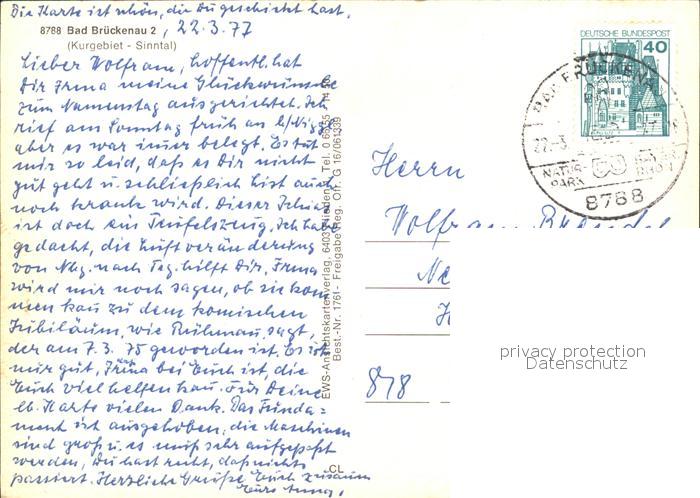 Die Karte ist schön, die Du geschickt hast,
8788 Bad Brückenau 2, 22.3.77
(Kurgebiet - Sinntal)
Lieber Wolfram, hoffentl. hat
Dir Irma meine Glückwünsche
zum Namenstag ausgerichtet. Ich
rief am Sonntag früh an
aber es war immer belegt. Es tut
mir so leid, daß es Dir nicht
gut geht u. schließlich bist auch
noch krank wird. Dieser
ist doch ein Teufelszeug. Ich habe
gedacht, die Luftveränderung
von Nbg. nach Teg. hilft Dir, Irma
wird mir noch sagen, ob sie kom
men kan zu dem komischen
Jubiläum, wie Ruhmau, sagt,
der am 7.3. 75 geworden ist. Es ist
mir gut, Irma bei Euch ist, die
Euch viel helfen kan. Für Deine
lb. Karte vielen Dank. Das Funda=
ment ist ausgehoben, die Maschinen
sind groß u. es muß sehr aufgepaßt
werden, Du hast recht, daß nichts
passiert. Herzliche Grüße Euch zusamm
Eure
EWS-Ansichtskartenverlag, 6403 Flieden 1, Tel. 0 66 55
Best.-Nr. 1761 - Freigabe Reg. Off. G 16/061339
CL
DEUTSCHE BUNDESPOST
40
BAD BRÜCKENAU
22.-3.
NATUR-
PARK
BAYER.
RHÖN
8788
Herrn
Wolfram
878
privacy protection
Datenschutz